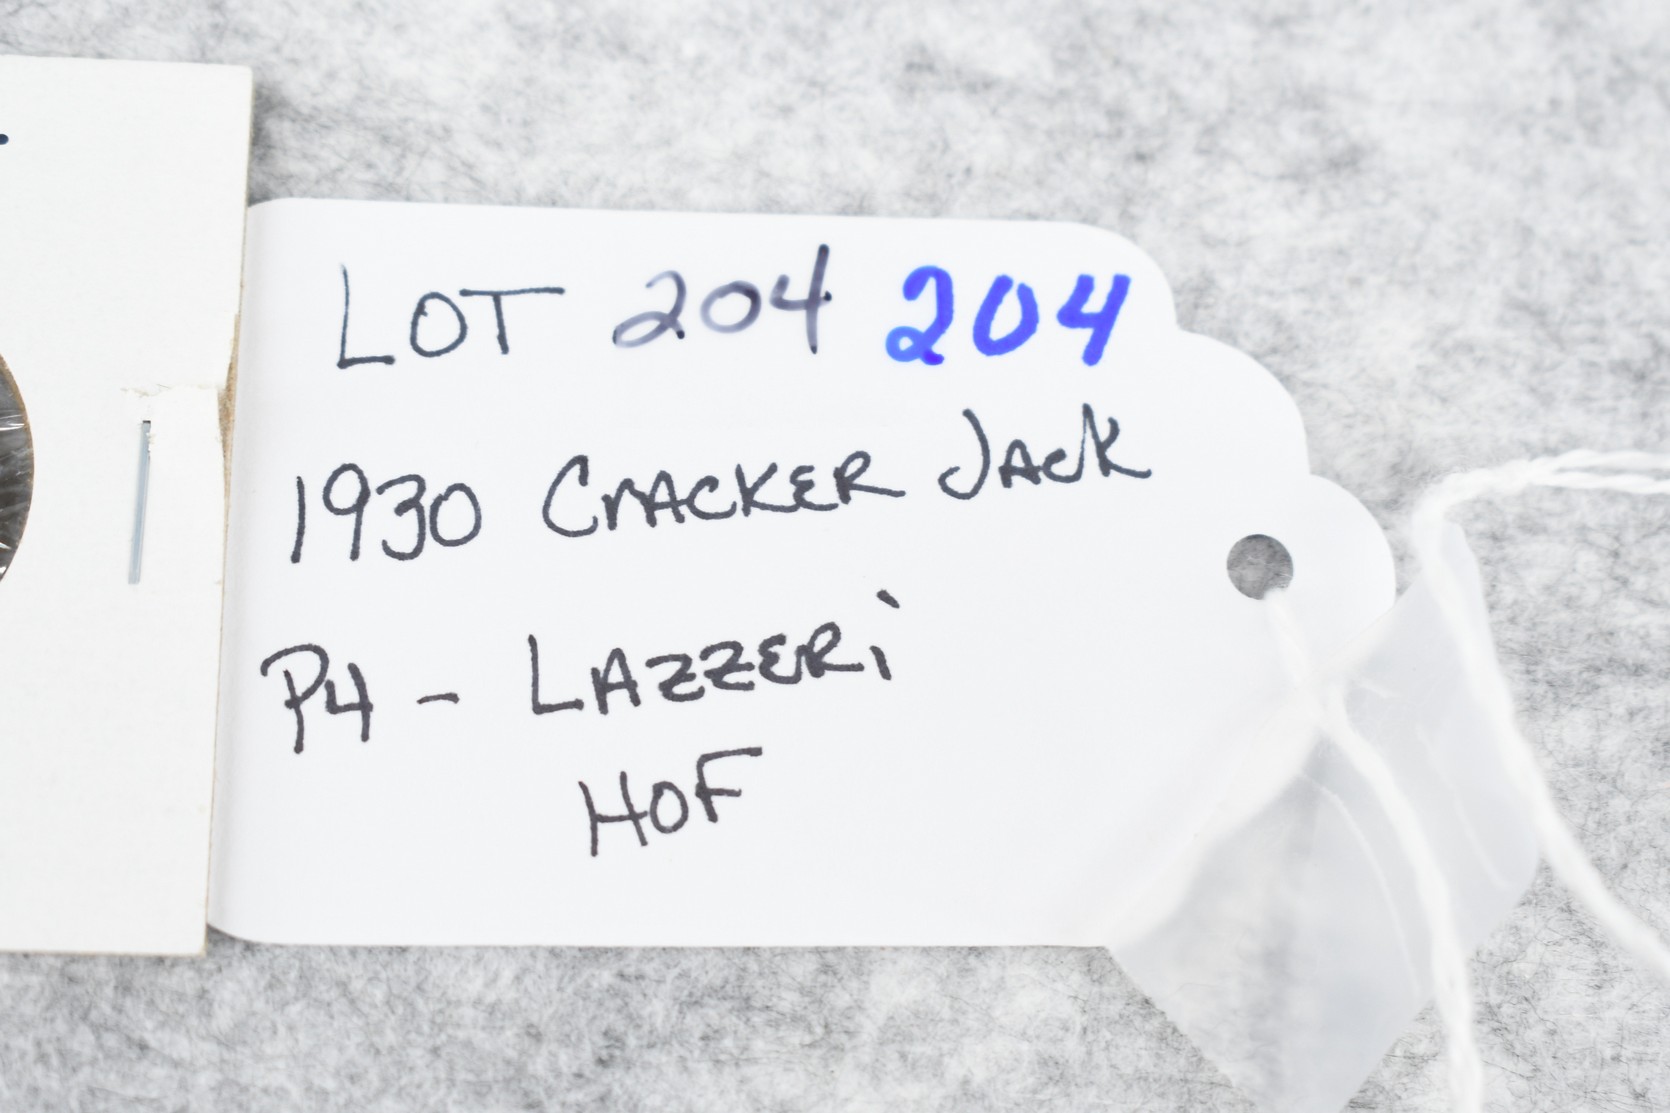 LOT 204 204
1930 CRACKER JACK
P4 - LAZZERi
HOF